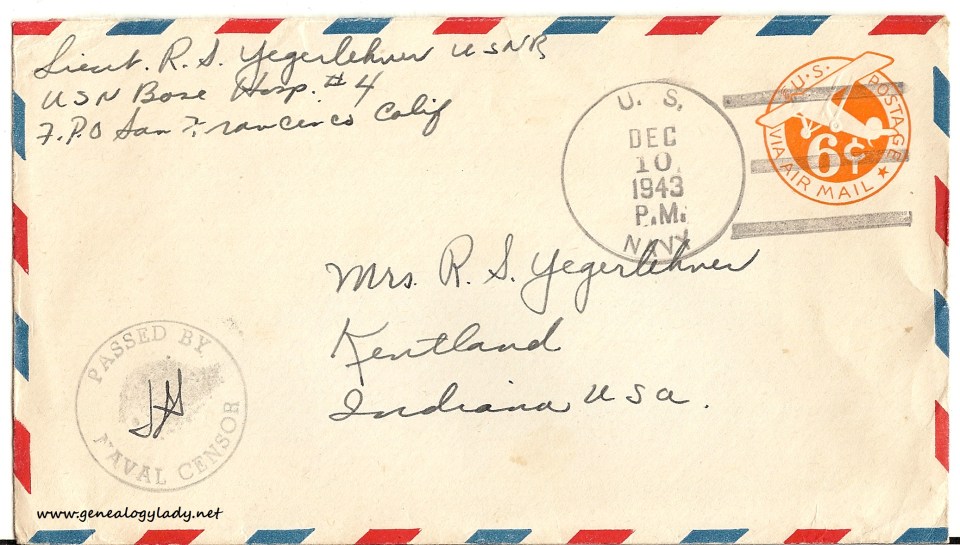 Lieut. R. S. Yegerlehner USNR
USN Base Hosp. #4
F.P.O San Francisco Calif
U. S.
DEC
10
1943
P.M.
NAVY
U.S. POSTAGE
6¢
VIA AIR MAIL
Mrs. R. S. Yegerlehner
Kentland
Indiana USA.
PASSED BY
NAVAL CENSOR
www.genealogylady.net